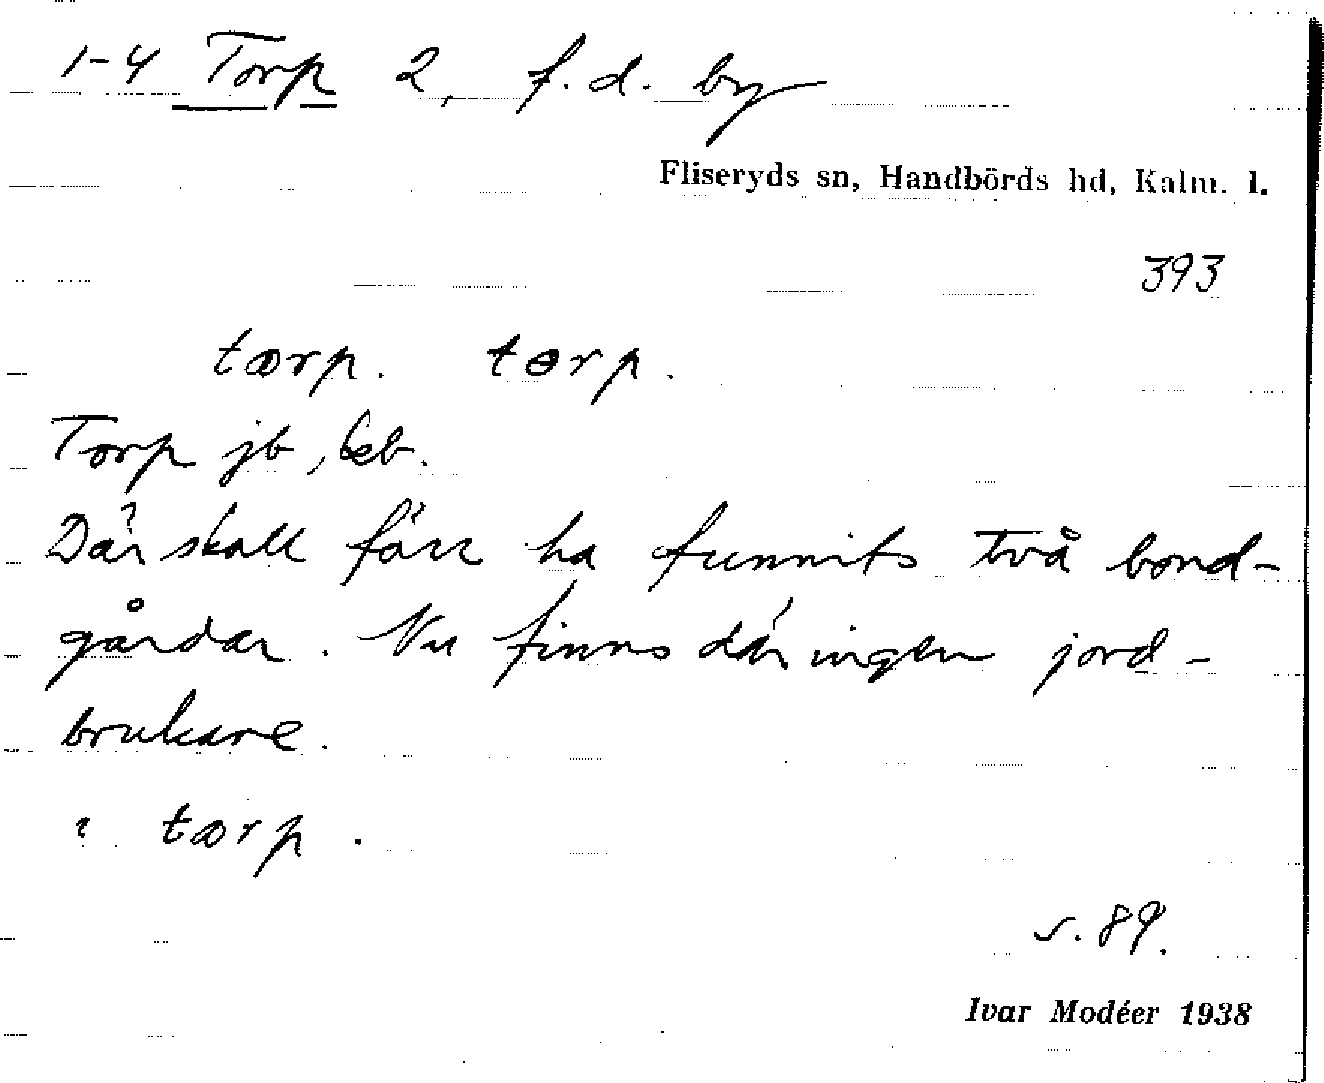 1-4 Torp 2, f.d. by
Fliseryds sn, Handbörds hd, Kalm. l.
393
tærp. tørp.
Torp jb, kb.
Där skall förr ha funnits två bond-
gårdar. Nu finns där ingen jord-
brukare.
tærp.
s. 89.
Ivar Modéer 1938